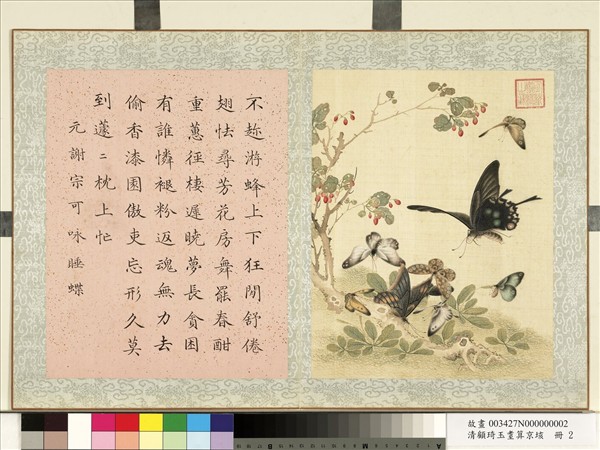 不趂游蜂上下狂閒舒倦
翅怯尋芳花房舞罷春酣
重蕙徑棲遲曉夢長貪困
有誰憐褪粉返魂無力去
偷香漆園傲吏忘形久莫
到蘧〻枕上忙
元謝宗可咏睡蝶
故畫 003427N000000002
清顧琦玉算京垓 冊 2